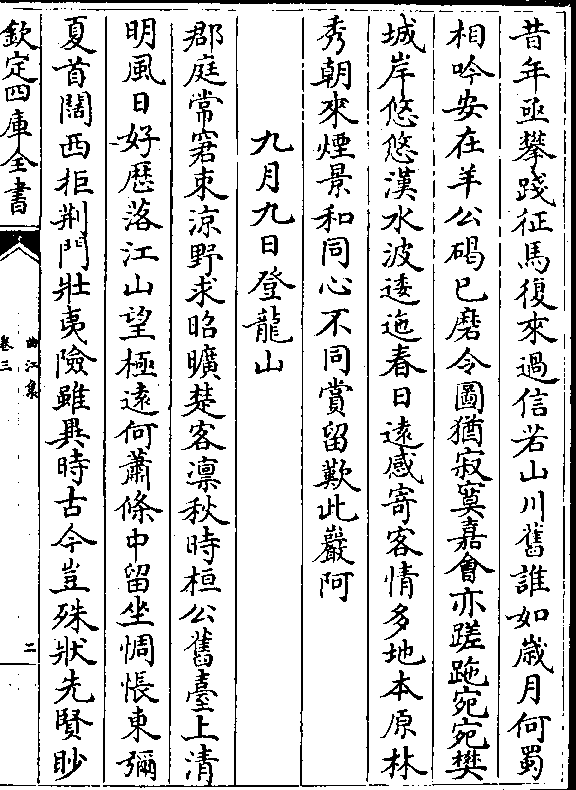 昔年亟攀踐征馬復來過信若山川舊誰如歳月何蜀
相吟安在羊公碣已磨令圖猶寂寞嘉會亦蹉跎宛宛樊
城岸悠悠漢水波逶迤春日遠感寄客情多地本原林
秀朝來煙景和同心不同賞留歎此巖阿
九月九日登龍山
郡庭常窘束涼野求昭曠楚客凛秋時桓公舊臺上清
明風日好歴落江山望極遠何蕭條中留坐惆悵東彌
夏首闊西拒荆門壯夷險雖異時古今豈殊狀先賢眇
欽定四庫全書
曲江集
卷三
二